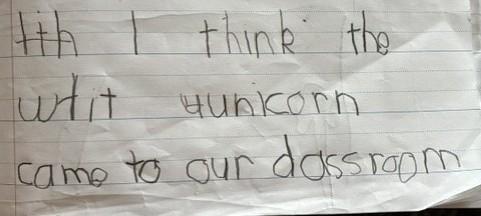 tth I think the
wtit yunicorn
came to our classroom